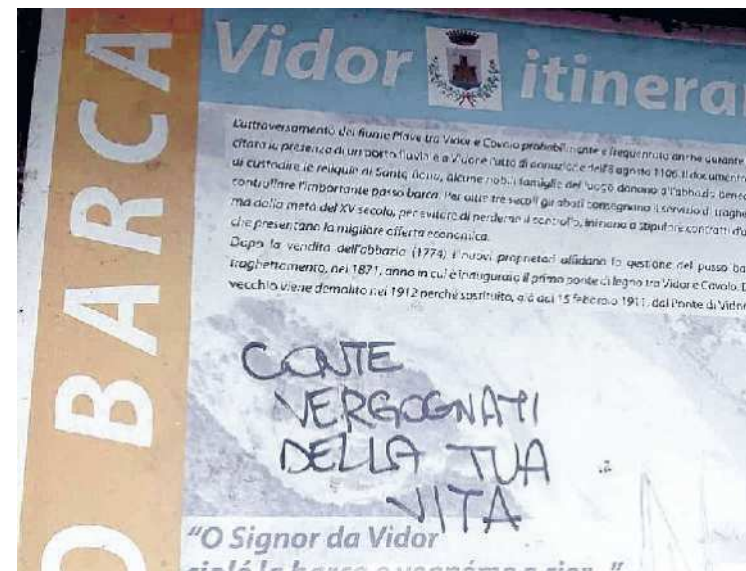 O BARCA
Vidor itinera
L'attraversamento del fiume Piave tra Vidor e Covolo probabilmente è frequentato anche durante
citare la presenza di un porto fluviale a Vidor è l'atto di donazione dell'8 agosto 1106. Il documento
di custodire le reliquie di Santa Bona, alcune nobili famiglie del luogo donano all'abbazia bene
controllare l'importante passo barca. Per oltre tre secoli gli abati consegnano il servizio di traghe
ma dalla metà del XV secolo, per evitare di perderne il controllo, iniziano a stipulare contratti d'a
che presentano la migliore offerta economica.
Dopo la vendita dell'abbazia (1774) i nuovi proprietari affidano la gestione del passo ba
traghettamento, nel 1871, anno in cui è inaugurato il primo ponte di legno tra Vidor e Covolo.
vecchio viene demolito nel 1912 perché sostituito, già dal 15 febbraio 1911, dal Ponte di Vidor
CONTE
VERGOGNATI
DELLA TUA
VITA
"O Signor da Vidor